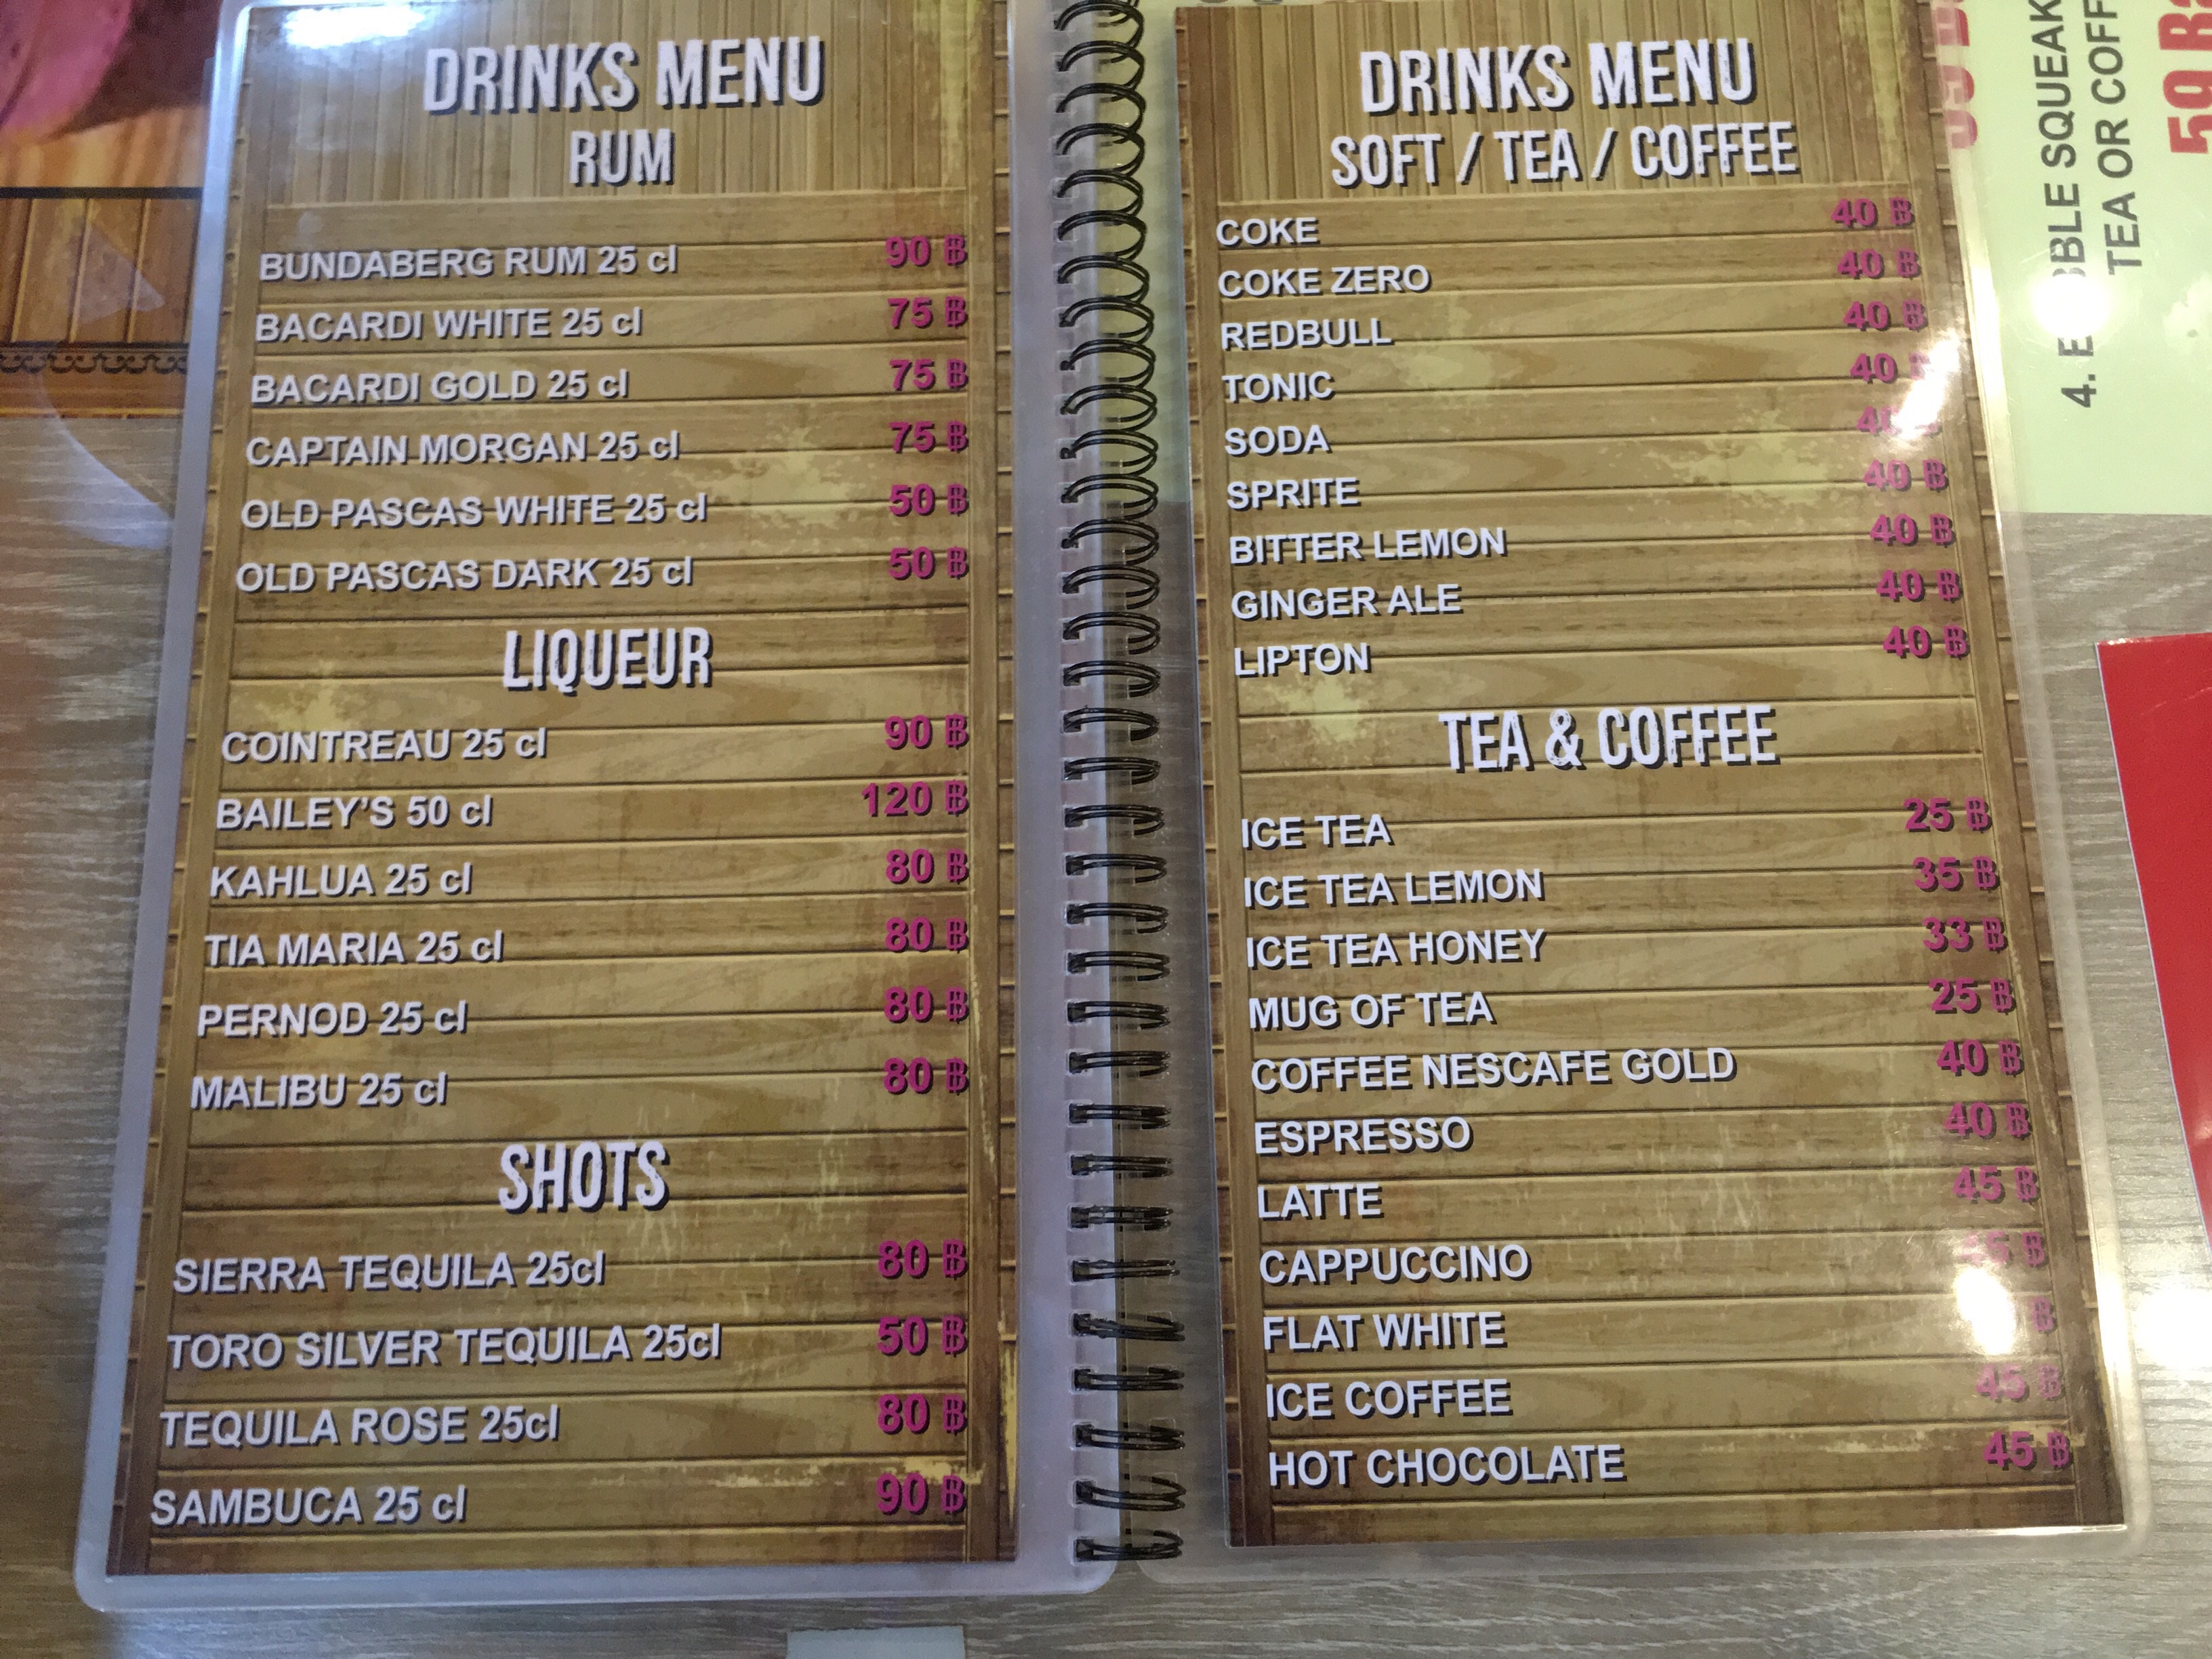 DRINKS MENU
RUM
BUNDABERG RUM 25 cl 90 ฿
BACARDI WHITE 25 cl 75 ฿
BACARDI GOLD 25 cl 75 ฿
CAPTAIN MORGAN 25 cl 75 ฿
OLD PASCAS WHITE 25 cl 50 ฿
OLD PASCAS DARK 25 cl 50 ฿
LIQUEUR
COINTREAU 25 cl 90 ฿
BAILEY'S 50 cl 120 ฿
KAHLUA 25 cl 80 ฿
TIA MARIA 25 cl 80 ฿
PERNOD 25 cl 80 ฿
MALIBU 25 cl 80 ฿
SHOTS
SIERRA TEQUILA 25cl 80 ฿
TORO SILVER TEQUILA 25cl 50 ฿
TEQUILA ROSE 25cl 80 ฿
SAMBUCA 25 cl 90 ฿
DRINKS MENU
SOFT / TEA / COFFEE
COKE 40 ฿
COKE ZERO 40 ฿
REDBULL 40 ฿
TONIC 40 ฿
SODA
SPRITE 40 ฿
BITTER LEMON 40 ฿
GINGER ALE 40 ฿
LIPTON 40 ฿
TEA & COFFEE
ICE TEA 25 ฿
ICE TEA LEMON 35 ฿
ICE TEA HONEY 33 ฿
MUG OF TEA 25 ฿
COFFEE NESCAFE GOLD 40 ฿
ESPRESSO 40 ฿
LATTE 45 ฿
CAPPUCCINO ฿
FLAT WHITE ฿
ICE COFFEE 45 ฿
HOT CHOCOLATE 45 ฿
4.
TEA OR
59